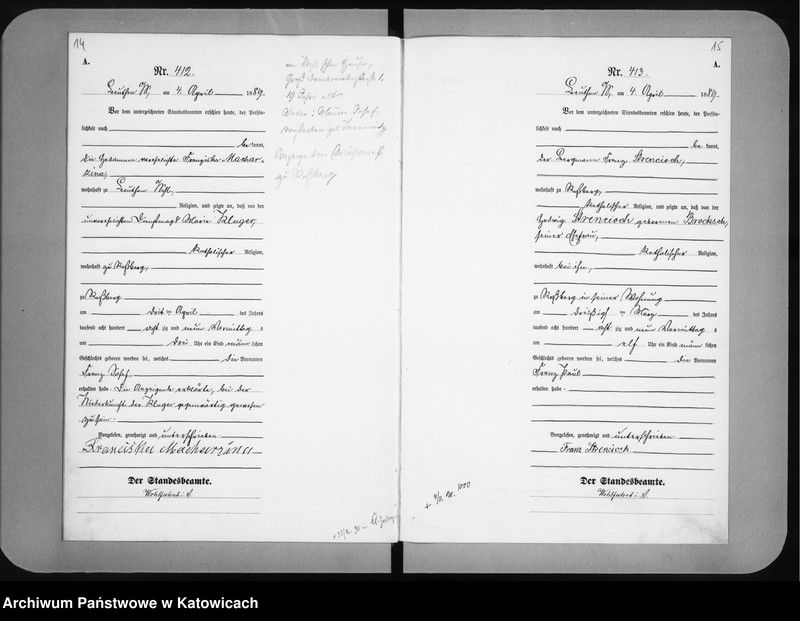 14
A.
Nr. 412.
Beuthen O/S, am 4. April 1889.
Vor dem unterzeichneten Standesbeamten erschien heute, der Persön-
lichkeit nach
be kannt,
die Hebamme verehelichte Franziska Machur-
zina,
wohnhaft zu Beuthen
Religion, und zeigte an, daß von der
unverehelichten Dienstmagd Marie Kluger,
katholischer Religion,
wohnhaft zu Roßberg,
zu Roßberg
am drit ten April des Jahres
tausend acht hundert acht zig und neun Vormittag s
um drei Uhr ein Kind männ lichen
Geschlechts geboren worden sei, welches die Vornamen
Franz Josef
erhalten habe. Die Anzeigende erklärte, bei der
Niederkunft der Kluger gegenwärtig gewesen
zu sein.
Vorgelesen, genehmigt und unterschrieben
Franciska Machurzina
Der Standesbeamte.
Wohlfahrt i. V.
zu Roßberg
15
A.
Nr. 413.
Beuthen O/S, am 4. April 1889.
Vor dem unterzeichneten Standesbeamten erschien heute, der Persön-
lichkeit nach
be kannt,
der Bergmann Franz Strencioch,
wohnhaft zu Roßberg,
katholischer Religion, und zeigte an, daß von der
Hedwig Strencioch geborenen
seiner Ehefrau,
katholischer Religion,
wohnhaft bei ihm,
zu Roßberg in seiner Wohnung
am dreißigs ten März des Jahres
tausend acht hundert acht zig und neun Vormittag s
um elf Uhr ein Kind männ lichen
Geschlechts geboren worden sei, welches die Vornamen
Franz Paul
erhalten habe.
Vorgelesen, genehmigt und unterschrieben
Franz Strencioch
Der Standesbeamte.
Wohlfahrt i. V.
Archiwum Państwowe w Katowicach